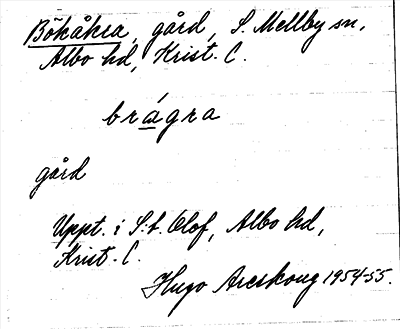 Bökåkra, gård, S. Mellby sn,
Albo hd, Krist. l.
brágra
gård
Uppt. i S:t. Olof, Albo hd,
Krist. l.
Hugo Areskoug 1954-55.